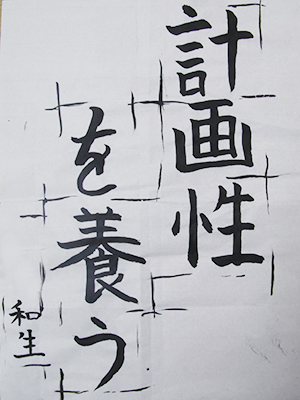 計画性
を養う
和生